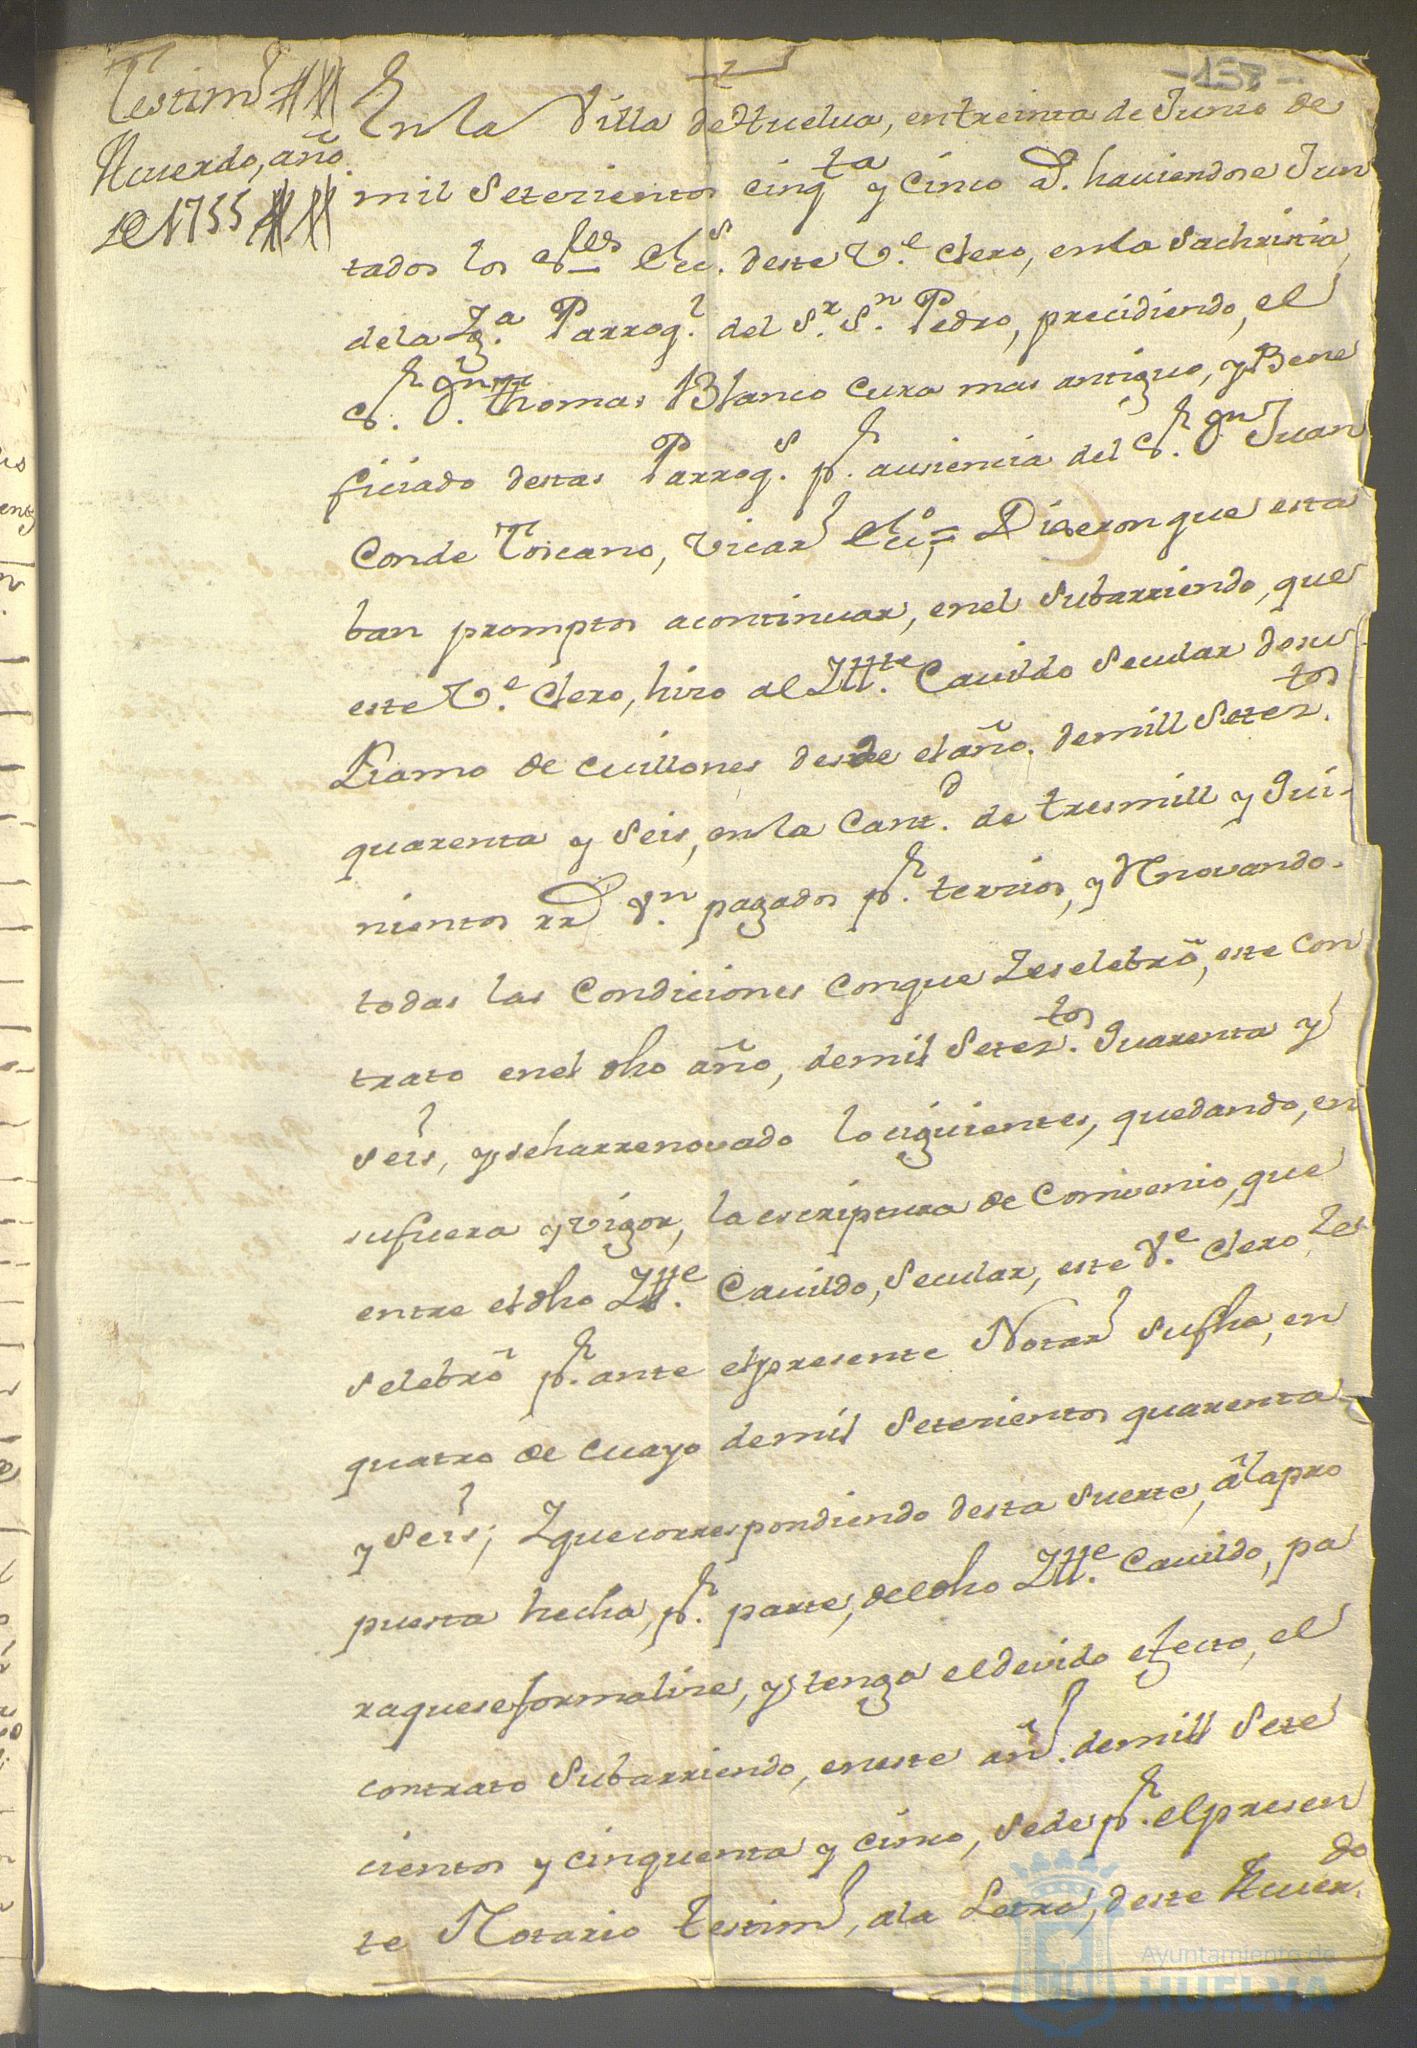 Testim.º
Acuerdo, año
de 1755
137
En la Villa de Huelva, en treinta de Junio de
mil Setezientos cinq.ta y cinco a.s haviendose Jun
tados los S.res Ecc.s deste V.e Clero, en la Sachristia
de la Ig.a Parroq.l del S.r S.n Pedro, precidiendo, el
S.r D.n Thomas Blanco Cura mas antiguo, y Bene
ficiado destas Parroq.s p.r ausiencia del S.r D.n Juan
Conde Toscano, Vicar.o Ecc.o = Dixeron que esta
ban promptos a continuar, en el Subarriendo, que
este V.e Clero, hizo al Ill.te Cavildo Secular de su
Ramo de millones desde el año. de mill Setez.tos
quarenta y Seis, en la Cant.d de tresmill y qui-
nientos rr.s v.n pagados p.r tercios, y Rnovando-
todas las Condiciones con que se selebró, este con
trato en el dho año, de mil Setez.tos quarenta y
seis, y se ha rrenovado lo siguientes, quedando, en
su fuerza y vigor, la escriptura de Comvenio, que
entre el dho Ill.e Cavildo, Secular, este V.e Clero, se
selebró p.r ante el presente Notar.o su fha, en
quatro de mayo de mil Setezientos quarenta
y Seis; I que correspondiendo desta Suerte, à la pro
puesta hecha, p.r parte, del dho Ill.e Cavildo, pa
ra que se formalize, y tenga el devido efecto, el
contrato Subarriendo, en este añ.o de mill Sete
cientos y cinquenta y cinco, se de p.r el presen
te Notario testim.o, a la Letra, deste Acuer.do
Ayuntamiento de
HUELVA